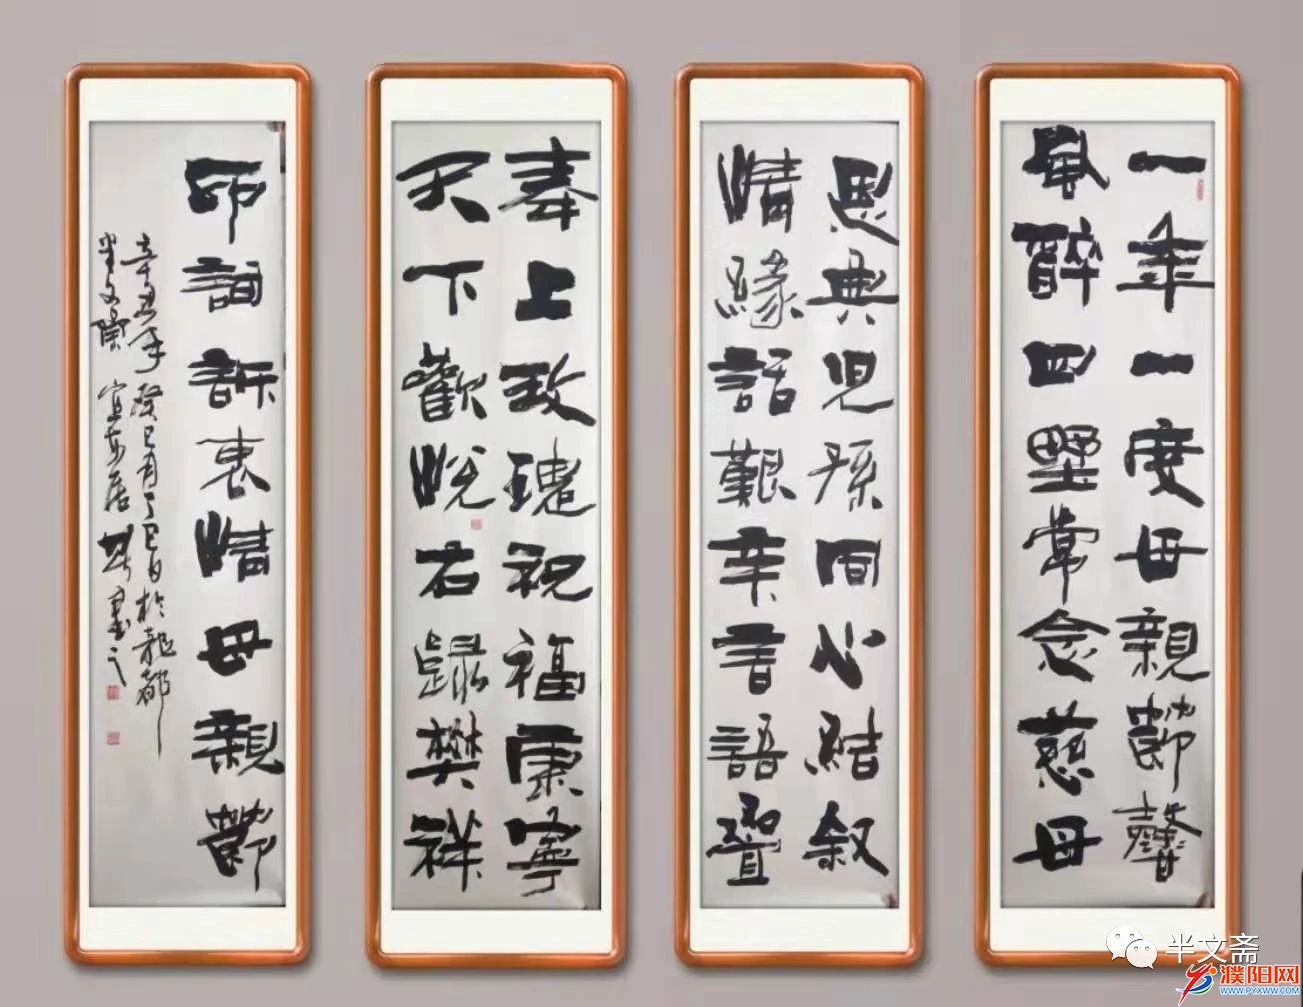 一年一度母親節聲
風醉四野常念慈母
恩典兒孫同心結叙
情緣話艱辛言語疊
奉上玫瑰祝福康寧
天下歡悅右歸樊祥
印詞訴衷情母親節
辛丑年癸巳月丁巳日於龍都
半文齋
書之
半文斋
濮阳网
WWW.PYXWW.COM